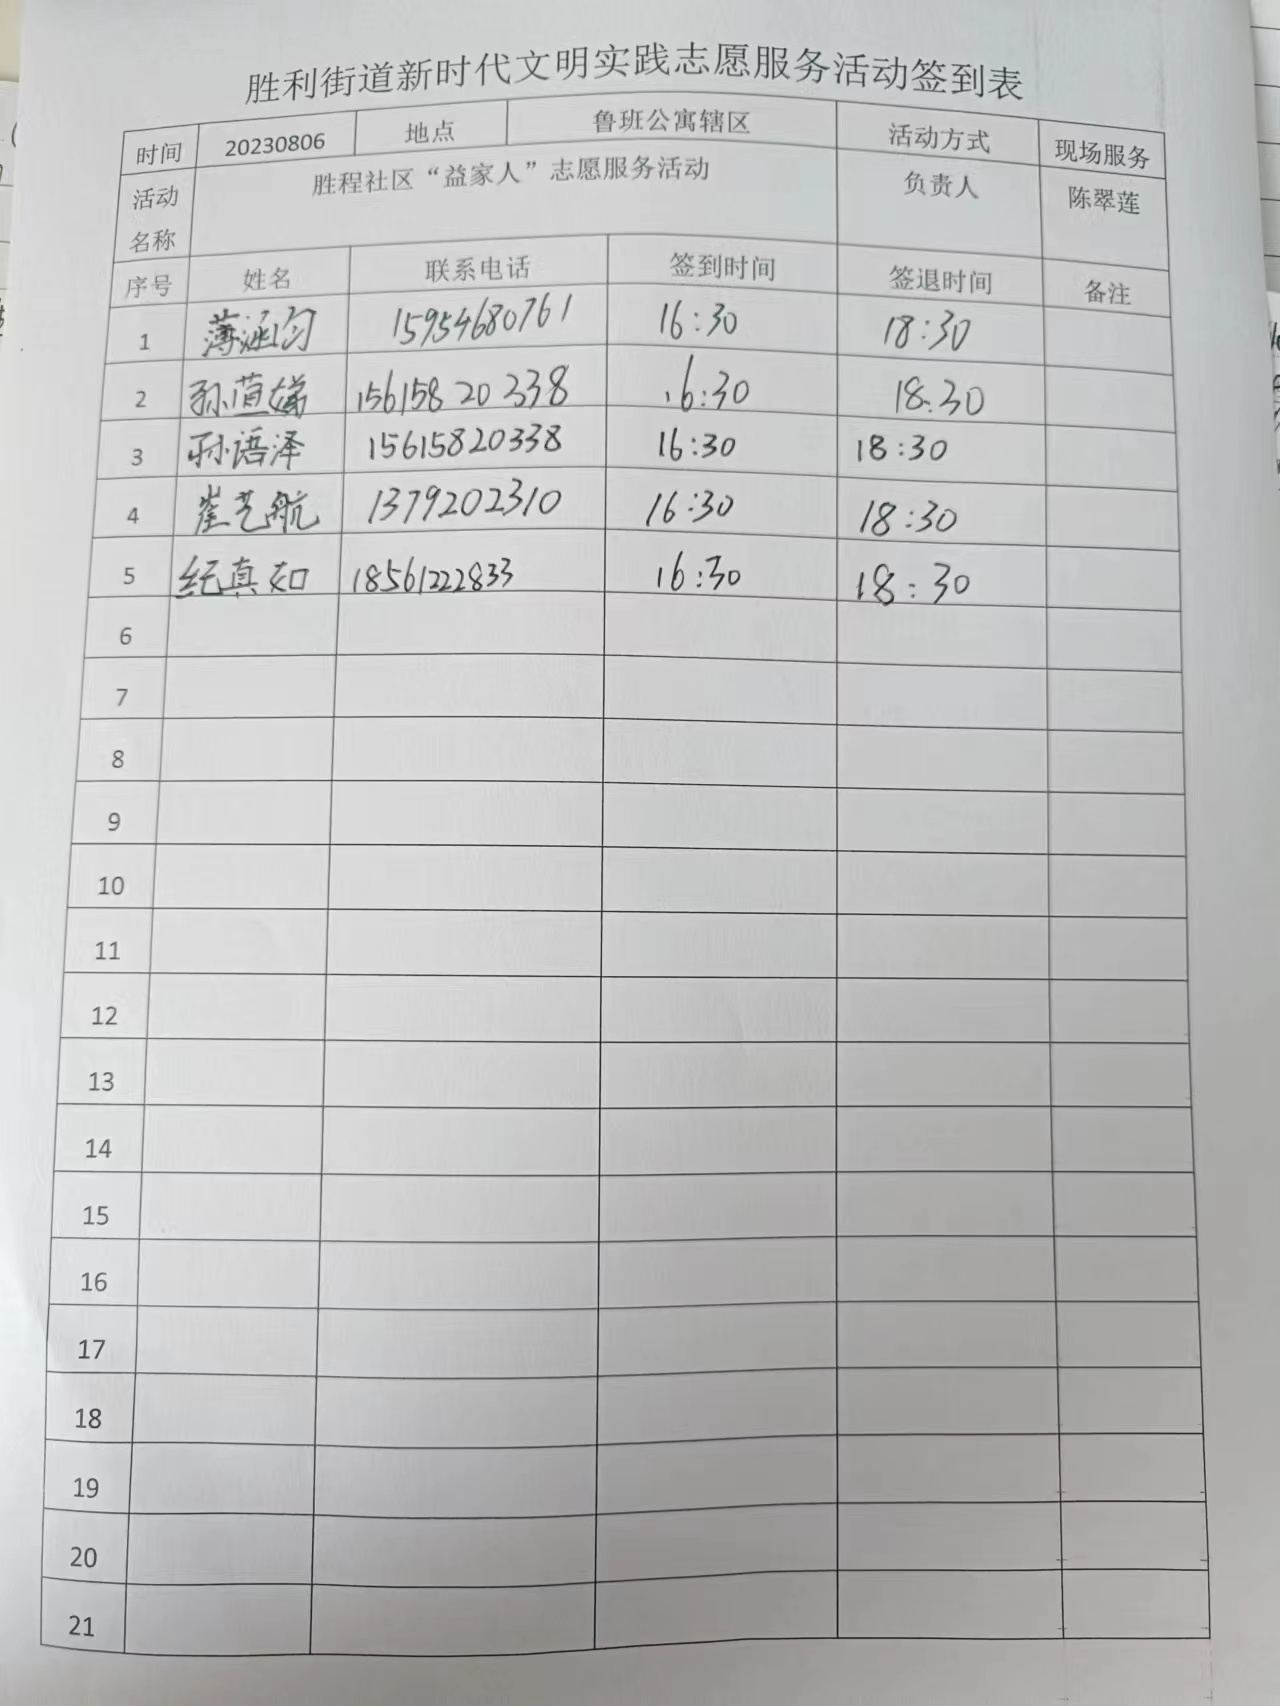 胜利街道新时代文明实践志愿服务活动签到表
时间 20230806 地点 鲁班公寓辖区 活动方式 现场服务
活动名称 胜程社区“益家人”志愿服务活动 负责人 陈翠莲
序号 姓名 联系电话 签到时间 签退时间 备注
1 薄涵匀 15954680761 16:30 18:30
2 孙萱娣 15615820338 16:30 18:30
3 孙语泽 15615820338 16:30 18:30
4 崔艺航 1379202310 16:30 18:30
5 纪真如 18561222833 16:30 18:30
6
7
8
9
10
11
12
13
14
15
16
17
18
19
20
21